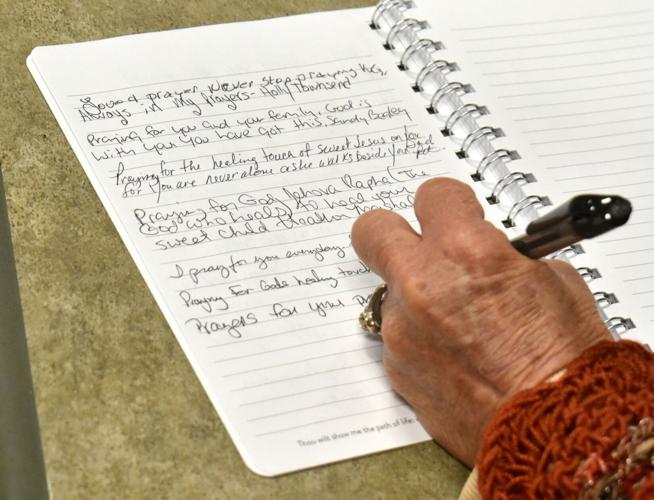 Love & prayer Never stop praying
Always in My Prayers - Holly Townsend
Praying for you and your family, God is
with you You have got this, Sandy
Praying for the healing touch of sweet Jesus on
for you are never alone as he walks beside
Praying for God Jehova Rapha (The
God who heals) to heal your
sweet child
I pray for you everyday
Praying for Gods healing touch
Prayers for your
Thou wilt show me the path of life: